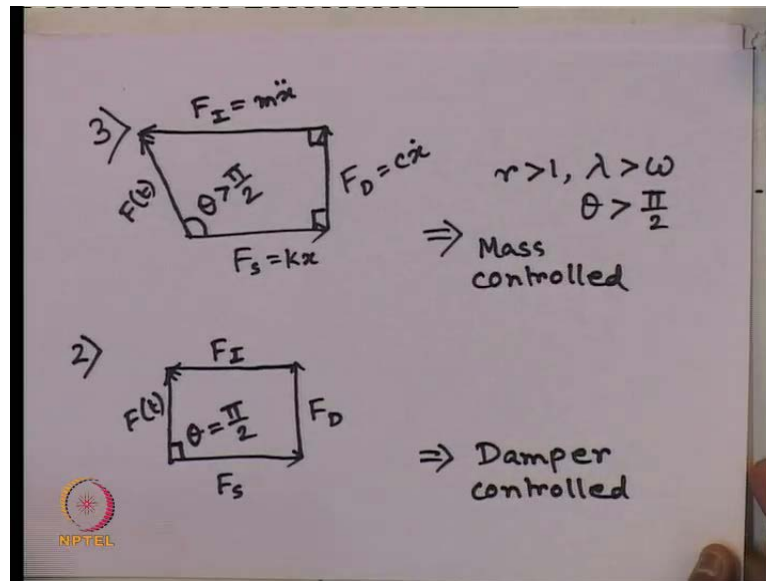 3> F_I = mẍ
F(t)
θ > π/2
F_D = cẋ
F_S = kx
r > 1, λ > ω
θ > π/2
⇒ Mass
controlled
2> F_I
F(t)
θ = π/2
F_D
F_S
⇒ Damper
controlled
NPTEL